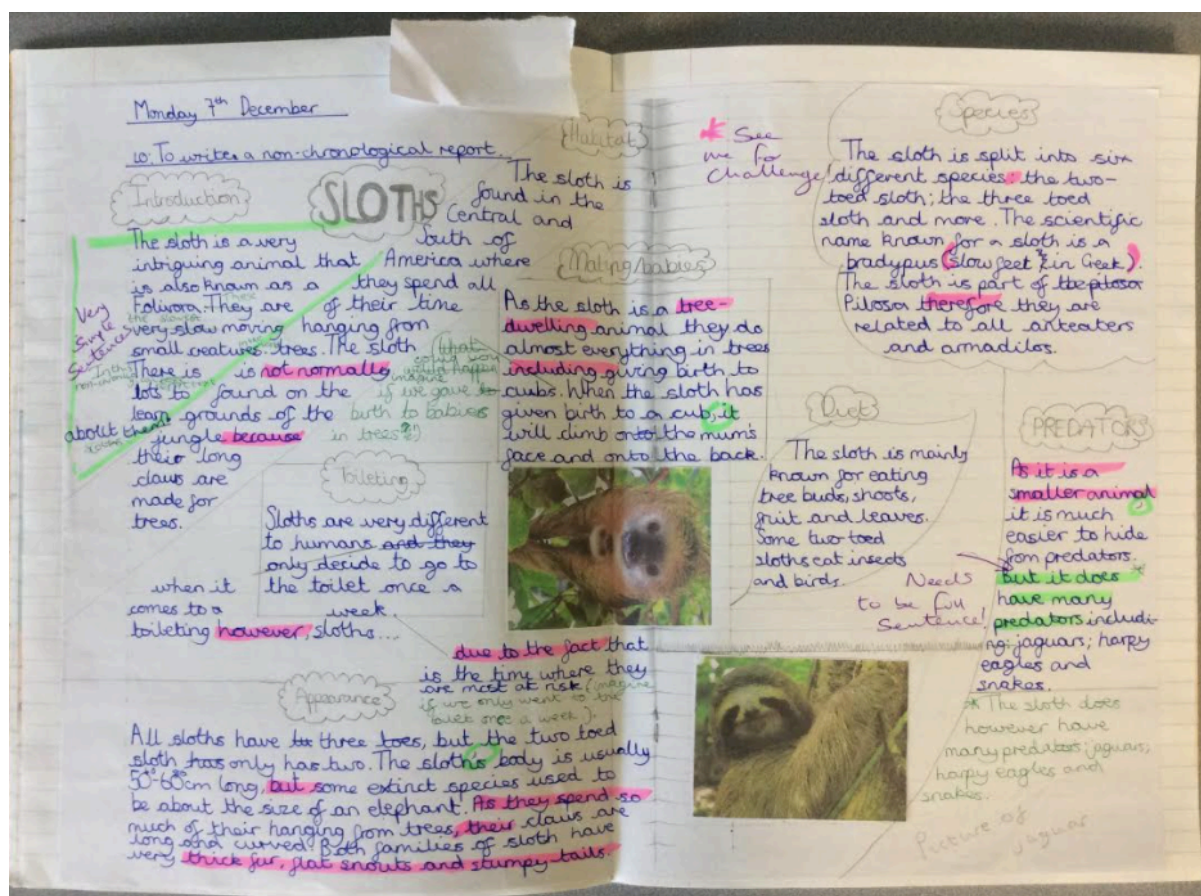 Monday 7th December
LO: To write a non-chronological report.
Introduction
SLOTHS
The sloth is a very
intriguing animal that
is also known as a
Folivora. They are
very slow moving
small creatures.
There is
lots to
learn
about them!
Very
simple
sentences
Habitat
The sloth is
found in the
Central and
South of
America where
they spend all
of their time
hanging from
trees. The sloth
is not normally
found on the
grounds of the
jungle because
their long
claws are
made for
trees.
Mating/babies
As the sloth is a tree-
dwelling animal they do
almost everything in trees
including giving birth to
cubs. When the sloth has
given birth to a cub, it
will climb onto the mum's
face and onto the back.
if we gave
birth to babies
in trees?!)
Toileting
Sloths are very different
to humans and they
only decide to go to
the toilet once a
week.
when it
comes to a
toileting however, sloths...
due to the fact that
is the time where they
are most at risk (imagine
if we only went to the
toilet once a week).
Appearance
All sloths have three toes, but the two toed
sloth has only has two. The sloth's body is usually
50-60cm long, but some extinct species used to
be about the size of an elephant. As they spend so
much of their hanging from trees, their claws are
long and curved. Both families of sloth have
very thick fur, flat snouts and stumpy tails.
* See
me for
challenge!
Species
The sloth is split into six
different species: the two-
toed sloth; the three toed
sloth and more. The scientific
name known for a sloth is a
bradypus (slow feet in Greek).
The sloth is part of the pilosa
Pilosa therefore they are
related to all anteaters
and armadilos.
Diet
The sloth is mainly
known for eating
tree buds, shoots,
fruit and leaves.
Some two toed
sloths eat insects
and birds.
Needs
to be full
sentence!
PREDATORS
As it is a
smaller animal,
it is much
easier to hide
from predators.
but it does
have many
predators includi-
ng: jaguars; harpy
eagles and
snakes.
* The sloth does
however have
many predators: jaguars;
harpy eagles and
snakes.
Picture of
jaguar